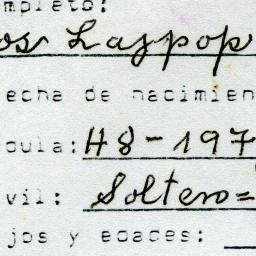 mpleto:
os Laspop
echa de nacimien
oula: H8-197
vil: Soltero=
jos y edades: